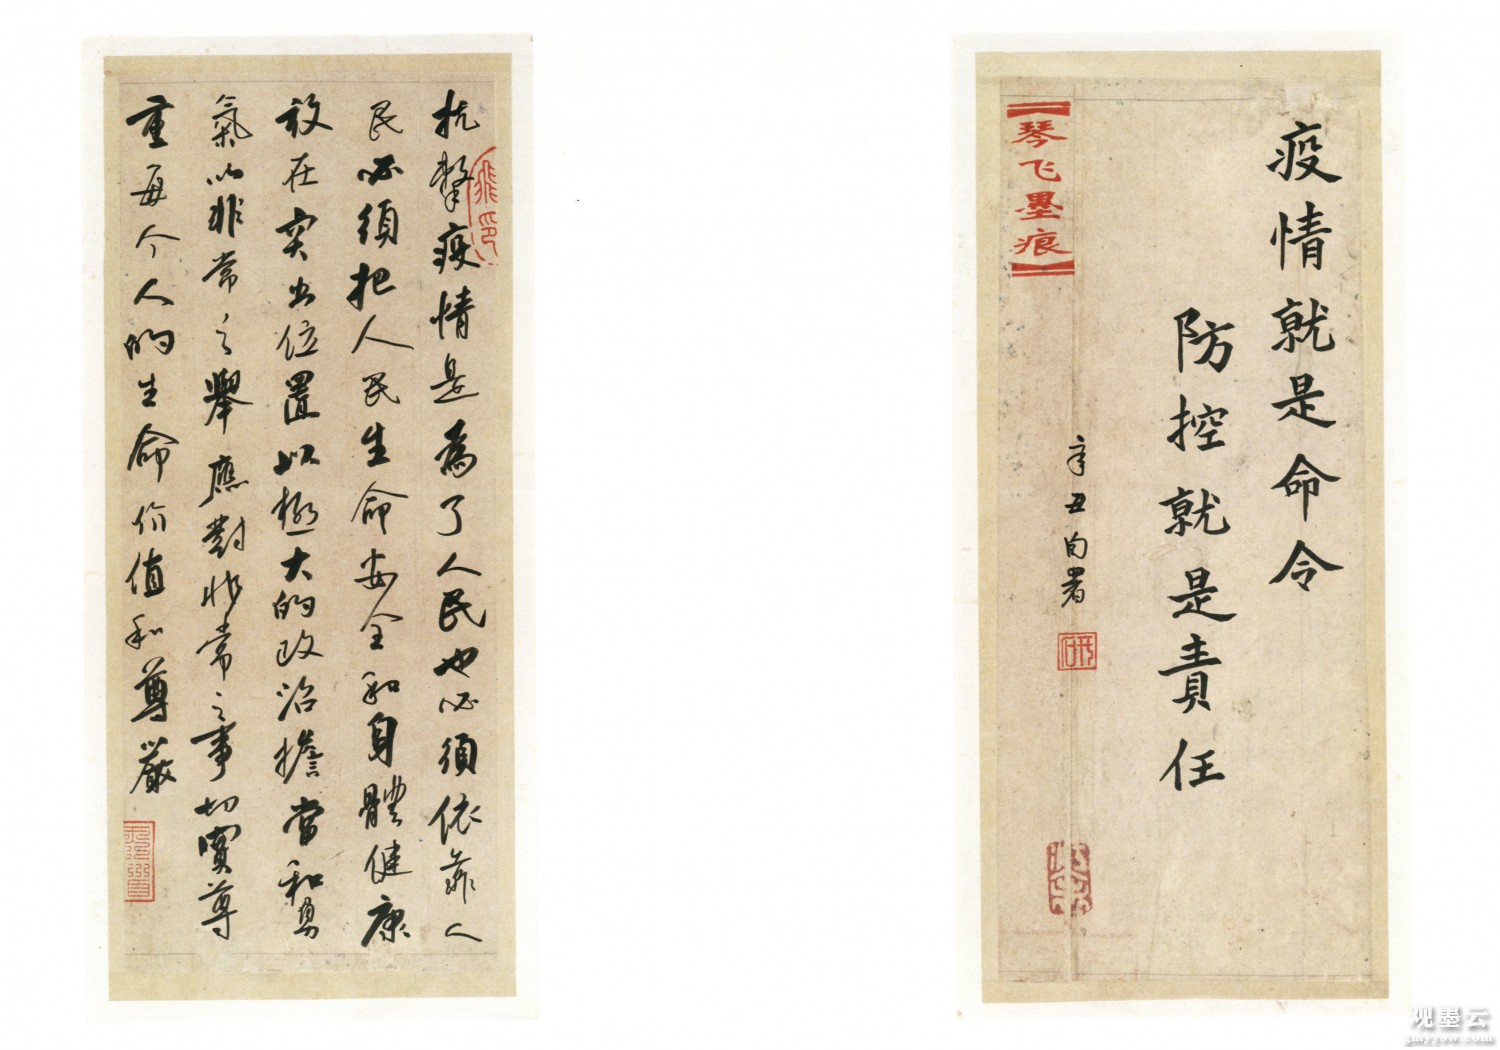 疫情就是命令
防控就是責任
辛丑 署
【琴飞墨痕】
抗擊疫情是為了人民也必須依靠人
民必須把人民生命安全和身體健康
放在突出位置以極大的政治擔當和勇
氣以非常之舉應對非常之事切實尊
重每个人的生命价值和尊嚴
观墨云